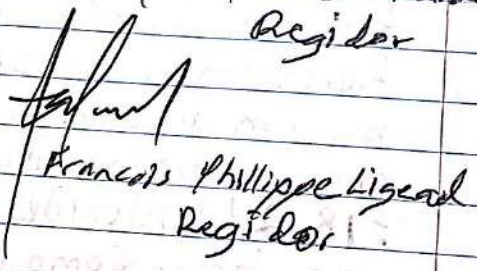 Regidor
Francois Phillippe Ligead
Regidor